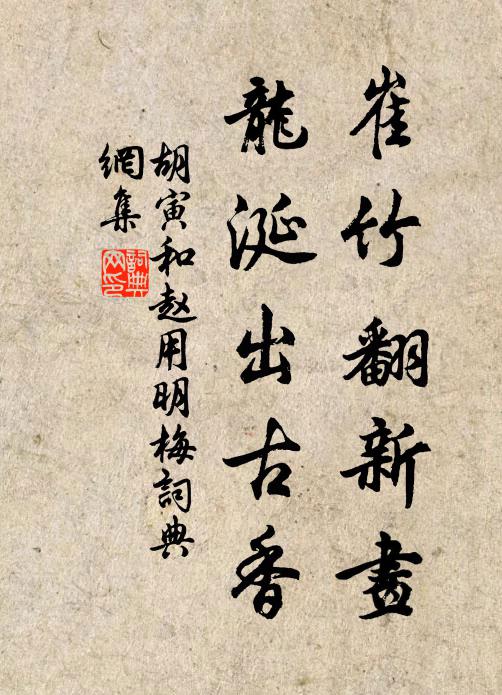 崔竹翻新畫
龍涎出古香
胡寅和赵用明梅詞典
網集
詞典
网印